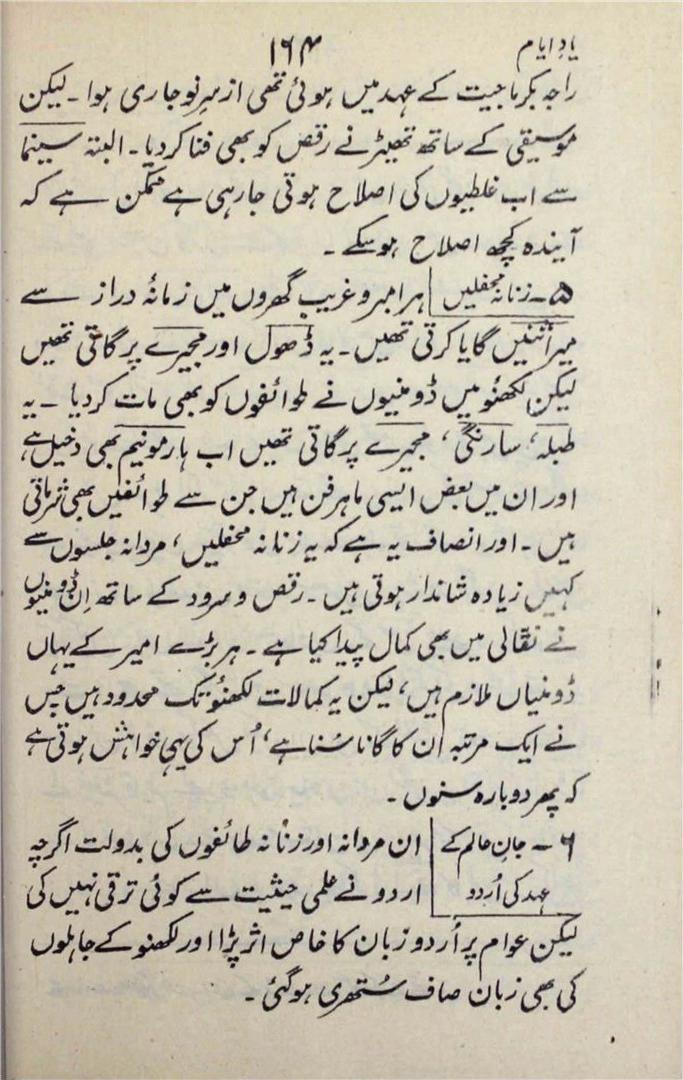 یادِ ایام
۱۶۴
راجہ بکرماجیت کے عہد میں ہوئی تھی از سرِ نو جاری ہوا۔ لیکن
موسیقی کے ساتھ تھیٹر نے رقص کو بھی فنا کر دیا۔ البتہ سینما
سے اب غلطیوں کی اصلاح ہوتی جا رہی ہے ممکن ہے کہ
آیندہ کچھ اصلاح ہو سکے۔
۵۔ زنانہ محفلیں ہر امیر و غریب گھروں میں زمانۂ دراز سے
میراثنیں گایا کرتی تھیں۔ یہ ڈھول اور مجیرے پر گاتی تھیں
لیکن لکھنؤ میں ڈومنیوں نے طوائفوں کو بھی مات کر دیا ۔ یہ
طبلہ، سارنگی، مجیرے پر گاتی تھیں اب ہارمونیم بھی دخیل ہے
اور ان میں بعض ایسی ماہر فن ہیں جن سے طوائفیں بھی شرماتی
ہیں۔ اور انصاف یہ ہے کہ یہ زنانہ محفلیں، مردانہ جلسوں سے
کہیں زیادہ شاندار ہوتی ہیں۔ رقص و سرود کے ساتھ اِن ڈومنیوں
نے نقّالی میں بھی کمال پیدا کیا ہے۔ ہر بڑے امیر کے یہاں
ڈومنیاں ملازم ہیں، لیکن یہ کمالات لکھنؤ تک محدود ہیں جس
نے ایک مرتبہ ان کا گانا سُنا ہے، اُس کی یہی خواہش ہوتی ہے
کہ پھر دوبارہ سنوں۔
۶۔ جانِ عالم کے ان مردانہ اور زنانہ طائفوں کی بدولت اگرچہ
عہد کی اُردو اردو نے علمی حیثیت سے کوئی ترقی نہیں کی
لیکن عوام پر اُردو زبان کا خاص اثر پڑا اور لکھنو کے جاہلوں
کی بھی زبان صاف سُتھری ہو گئی۔